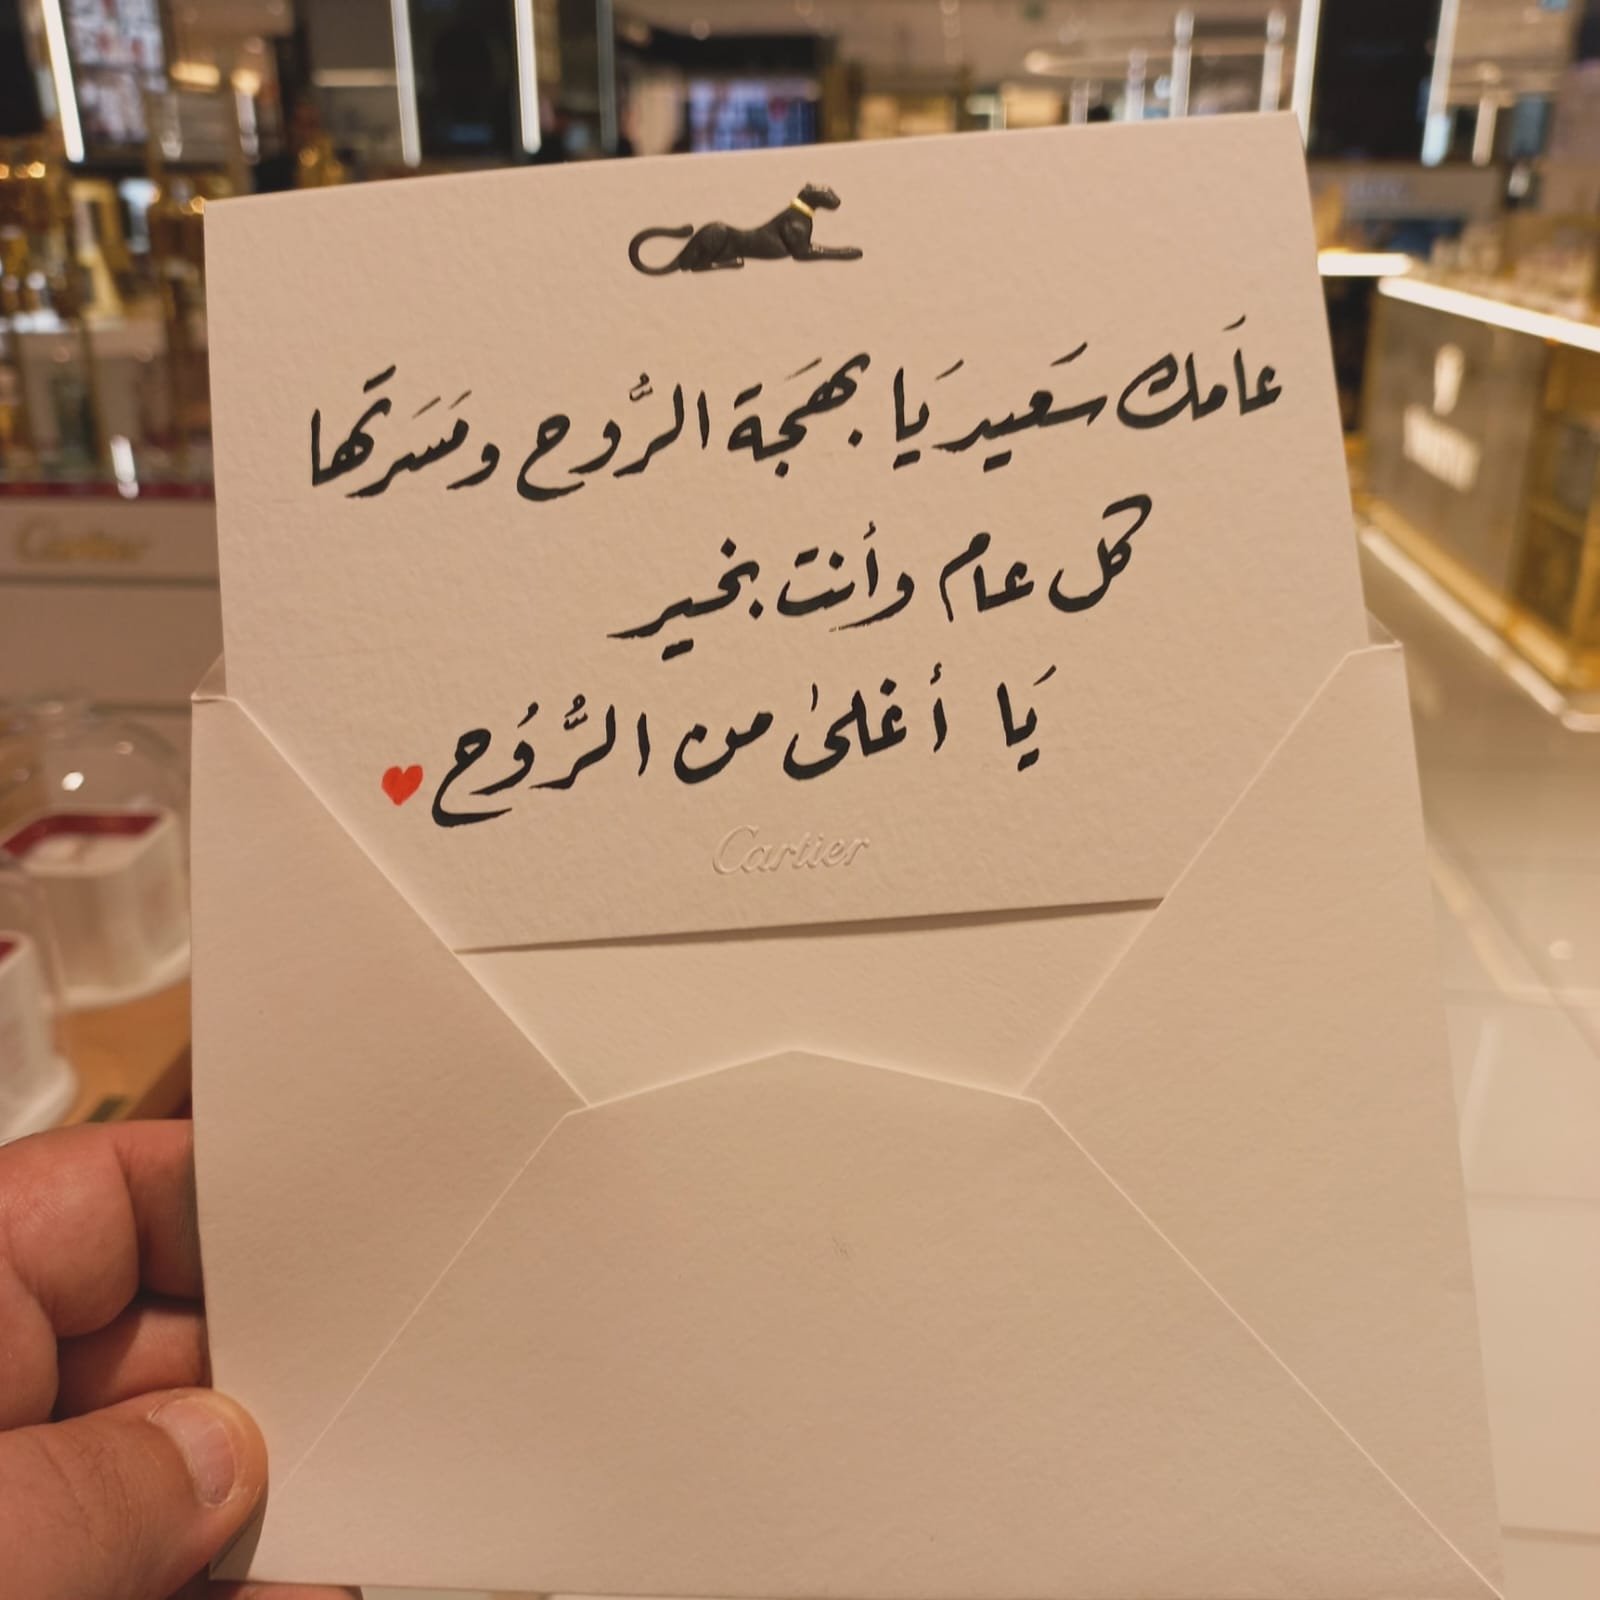 عاَمَك سَعيد يَا بهَجَة الرُّوح ومَسَرتَها
كل عام وأنت بخير
يَا أغلىٰ من الرُّوُح ♥
Cartier
Cartier